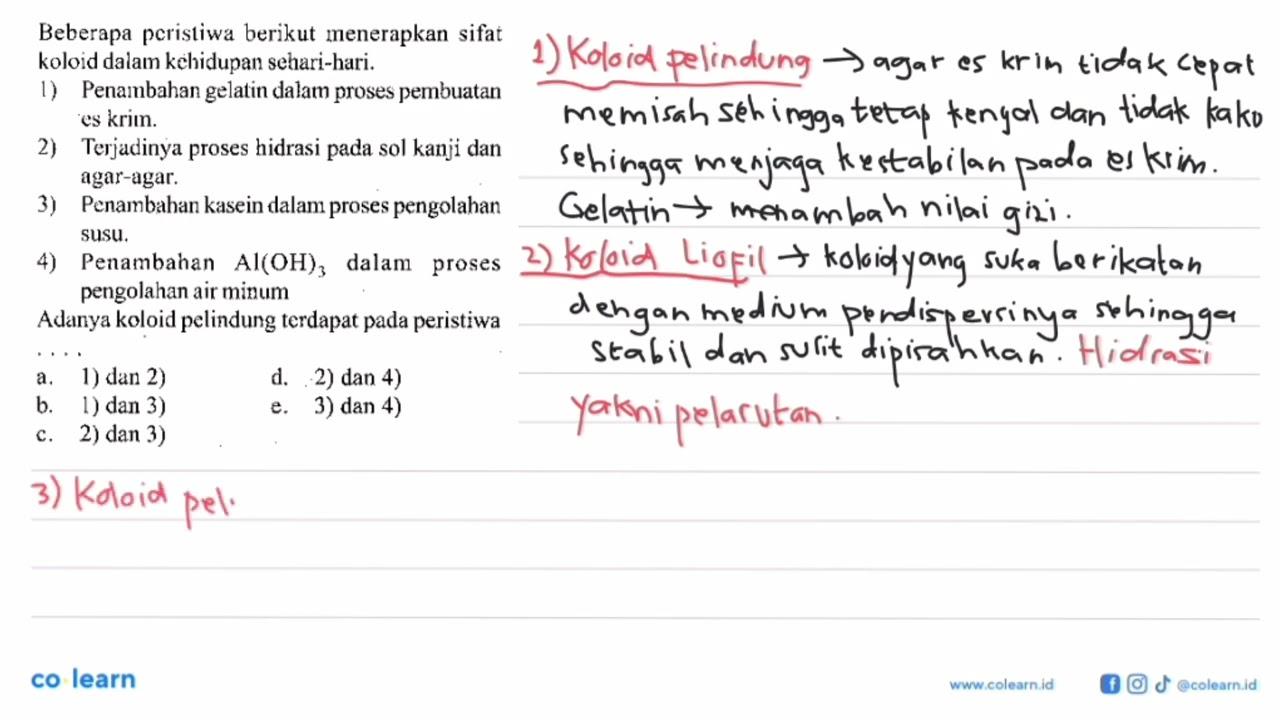 Beberapa peristiwa berikut menerapkan sifat
koloid dalam kehidupan sehari-hari.
1) Penambahan gelatin dalam proses pembuatan
es krim.
2) Terjadinya proses hidrasi pada sol kanji dan
agar-agar.
3) Penambahan kasein dalam proses pengolahan
susu.
4) Penambahan Al(OH)₃ dalam proses
pengolahan air minum
Adanya koloid pelindung terdapat pada peristiwa
. . . .
a. 1) dan 2)
b. 1) dan 3)
c. 2) dan 3)
d. 2) dan 4)
e. 3) dan 4)
1) Koloid pelindung → agar es krim tidak cepat
memisah sehingga tetap kenyal dan tidak kako
sehingga menjaga kestabilan pada es krim.
Gelatin → menambah nilai gizi.
2) Koloid Liofil → koloid yang suka berikatan
dengan medium pendispersinya sehingga
stabil dan sulit dipisahkan. Hidrasi
yakni pelarutan.
3) Koloid pel
co learn
www.colearn.id
@colearn.id